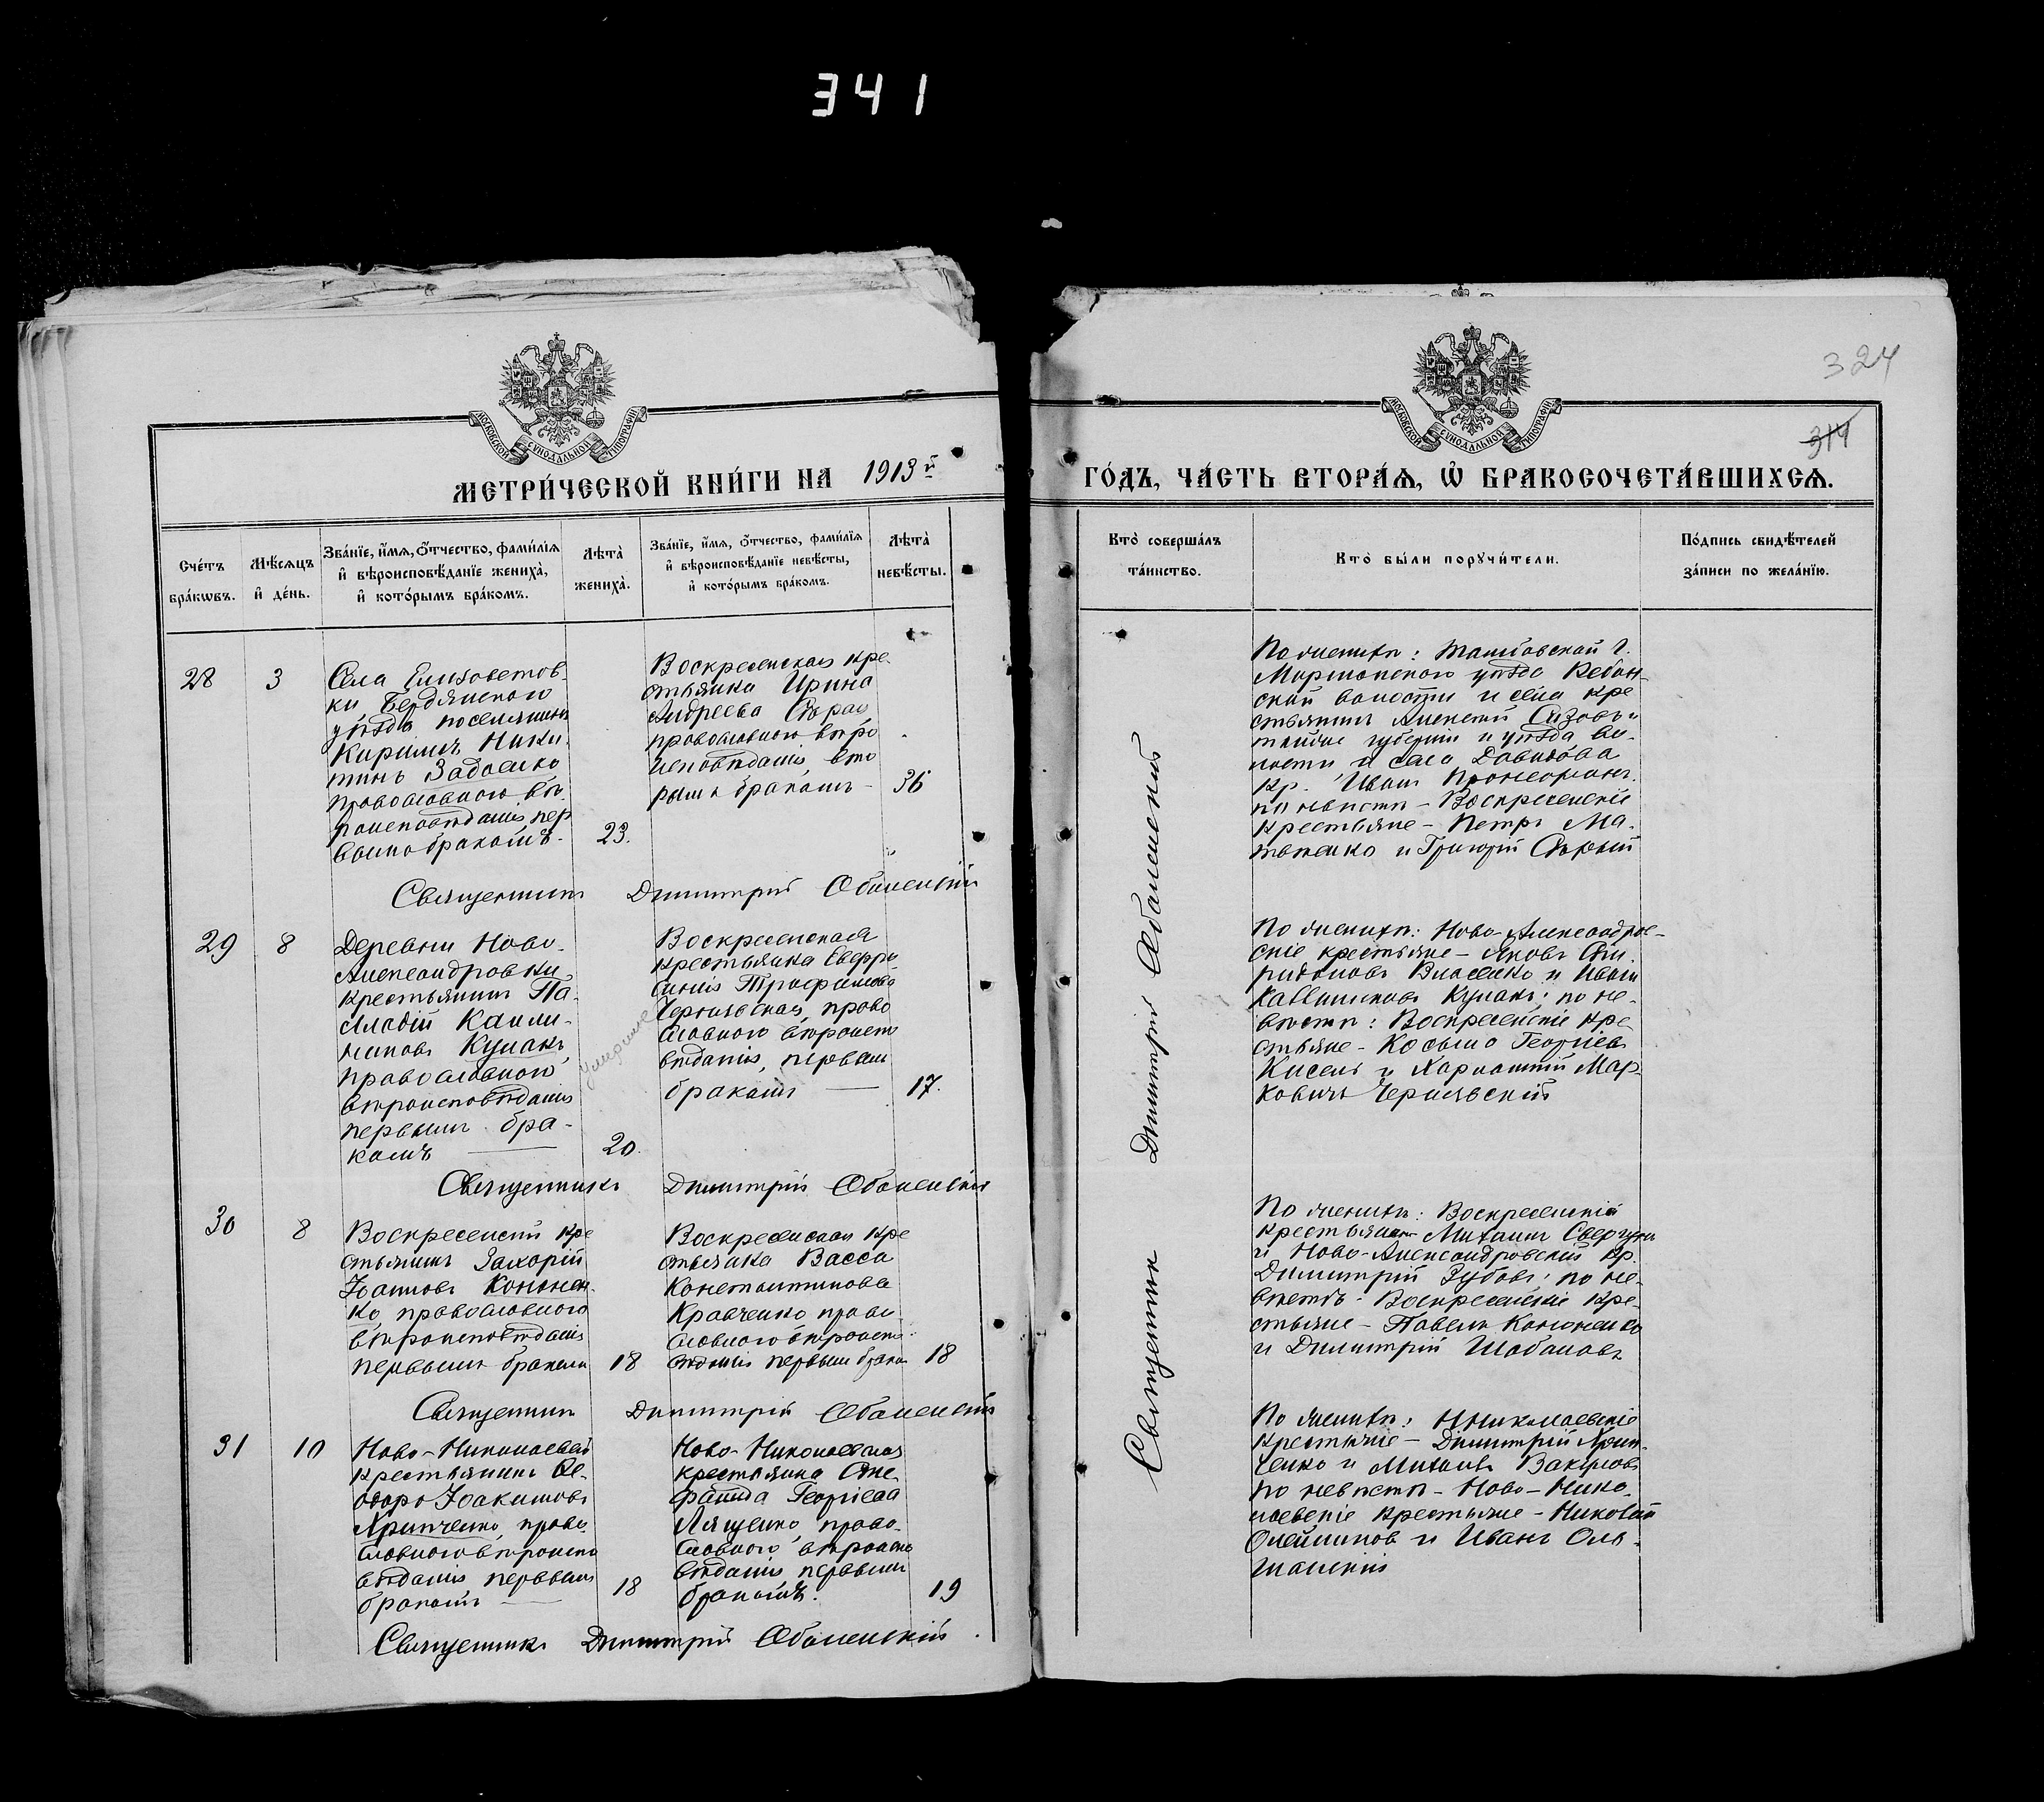 341
324
314
МОСКОВСКОЙ СѴНОДАЛЬНОЙ ТИПОГРАФІИ
МОСКОВСКОЙ СѴНОДАЛЬНОЙ ТИПОГРАФІИ
МЕТРИ́ЧЕСКОЙ КНИ́ГИ НА 1913й
ГО́ДЪ, ЧА́СТЬ ВТОРА́Ѧ, Ѽ БРАКОСОЧЕТА́ВШИХСѦ.
Сче́тъ бра́кѡвъ.
Мѣ́сѧцъ и҆ де́нь.
Зва́нїе, и҆́мѧ, ѻ҆́тчество, фами́лїѧ
и҆ вѣроисповѣ́данїе жениха̀,
и҆ кото́рымъ бра́комъ.
Лѣта̀ жениха̀.
Зва́нїе, и҆́мѧ, ѻ҆́тчество, фами́лїѧ
и҆ вѣроисповѣ́данїе невѣ́сты,
и҆ кото́рымъ бра́комъ.
Лѣта̀ невѣ́сты.
Кто̀ соверша́лъ
та́инство.
Кто̀ бы́ли порꙋчи́тели.
По́дпись свидѣ́телей
за́писи по жела́нїю.
28
3
Села Елизаветов-
ки Бердянского
уѣзда поселянинъ
Кириллъ Ники-
тинъ
православного вѣ-
роисповѣданія, пер
вымъ бракомъ
23.
Воскресенская кре-
стьянка Ирина
Андреева Сѣрая
православного вѣро
исповѣданія, вто
рымъ бракомъ - 36
По жениху: Тамбовской г.
Моршанского уѣзда
ской волости и села кре
стьянинъ Алексѣй Сизовъ и
губерніи и уѣзда во-
лости и села Давыдова
Кр. Иванъ
по невѣстѣ - Воскресенскіе
крестьяне - Петръ Ма-
твѣенко и Григорій Сѣрый
Священникъ Димитрій Оболенскій
29
8
Деревни Ново-
Александровки,
крестьянинъ Па-
лладій Калли-
никовъ Кулакъ,
православного
вѣроисповѣданія
первымъ бра-
комъ
20.
Воскресенская
крестьянка Евфро
синія Трофимова
Чернявская, право
славного вѣроиспо
вѣданія, первымъ
бракомъ
17.
По жениху: Ново-Александров-
скіе крестьяне - Яковъ Спи-
ридоновъ Власенко и Иванъ
Каллиниковъ Кулакъ; по не-
вѣстѣ: Воскресенскіе кре-
стьяне - Косьма Георгіевъ
Кисель и Харлампій Мар-
ковичъ Чернявскій
Священникъ Димитрій Оболенскій
30
8
Воскресенскій кре
стьянинъ Захарій
Іоанновъ Кононен-
ко, православного
вѣроисповѣданія
первымъ бракомъ 18
Воскресенская кре
стьянка Васса
Константинова
Кравченко право
славного вѣроиспо-
вѣданія первымъ бракомъ 18
По жениху: Воскресенскій
крестьянинъ Михаилъ
и Ново-Александровскій кр.
Димитрій Зубовъ; по не-
вѣстѣ - Воскресенскіе кре-
стьяне - Павелъ Кононенко
и Димитрій Шабановъ
Священникъ Димитрій Оболенскій
31
10
Ново-Николаевскій
крестьянинъ Ѳе-
одоръ Іоакимовъ
Хрипченко, право
славного вѣроиспо
вѣданія первымъ
бракомъ 18
Ново-Николаевская
крестьянка Сте-
фанида Георгіева
Лященко, право-
славного вѣроиспо
вѣданія, первымъ
бракомъ. 19
По жениху: Ниниколаевскіе
крестьяне - Димитрій Хрип-
ченко и Михаилъ Вакуловъ
по невѣстѣ - Ново-Нико-
лаевскіе крестьяне - Николай
Олейниковъ и Иванъ Оль-
шанскій
Священникъ Димитрій Оболенскій
Священникъ Димитрій Оболенскій